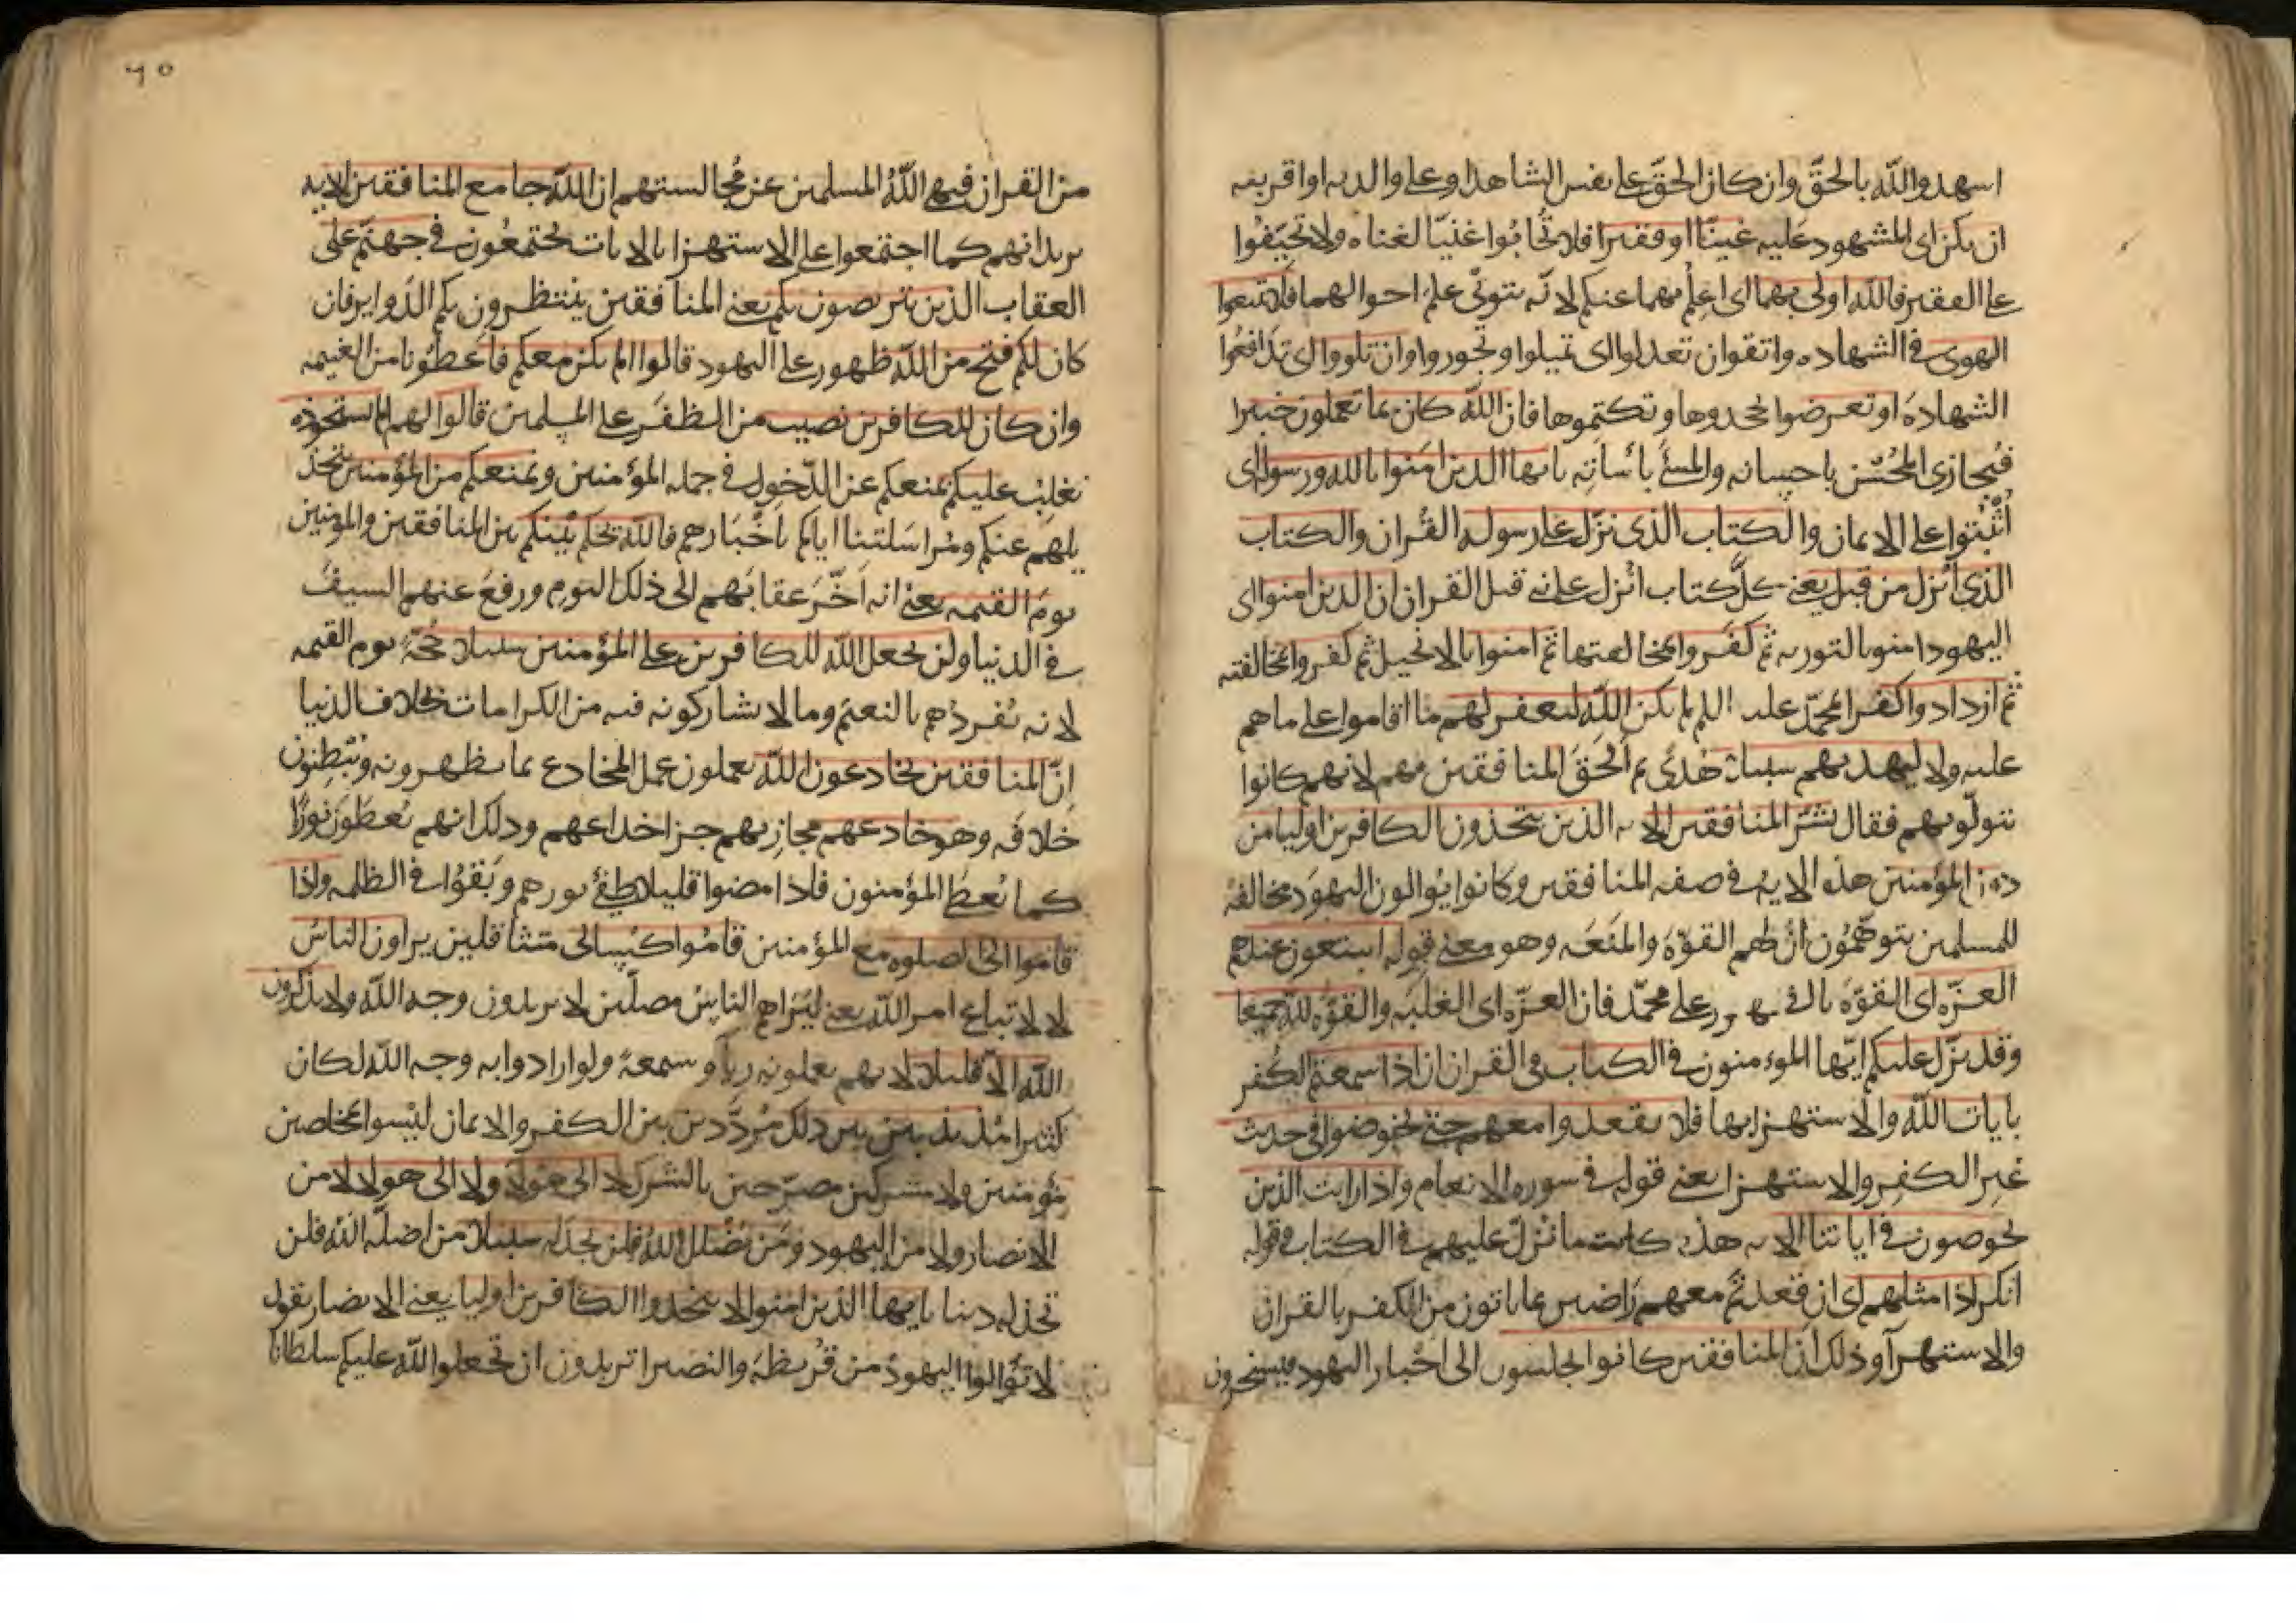 اشهدوا لله بالحق وان كان الحق على نفس الشاهد او على والديه او اقربيه
ان يكن اى المشهود عليه غنيّا او فقيرا فلا تُحابُوا غنيّا لغناه ولا تحيّفُوا
على الفقير فالله اولى بهما اى اعلم بهما عنكم لانه يتولّى علم احوالهما فلا تتبعوا
الهوى فى الشهاده واتقوا ان تعدلوا اى تميلوا وتجوروا وان تلووا اى تدافعوا
الشهادة او تعرضوا تجحدوها وتكتموها فان الله كان بما تعملون خبيرا
فيُجازى المُحْسن باحسانه والمسئَ بأسأته يا يها الذين امنوا بالله ورسوله اى
اثْبُتوا على الايمان والكتاب الذى نزّل على رسوله القُران والكتاب
الذى أنزل من قبل يعنى كلّ كتاب انزل على نبى قبل القران ان الذين امنوا اى
اليهود امنوا بالتوريه ثم كفروا بمخالفتها ثم امنوا بالانجيل ثم كفروا بمخالفته
ثم ازدادوا كفرا بمحمّد عليه السلم لم يكن الله ليغفر لهم ما اقاموا على ما هم
عليه ولا ليهديهم سبيلا هُدىً ثم ألحق المنافقين بهم لانهم كانوا
يتولّونهم فقال بَشّر المنافقين الايه الذين يتخذون الكافرين اوليا من
دون المؤمنين هذه الايه فى صفه المنافقين وكانوا يُوالون اليهود مخالفة
للمسلمين يتوهّمُون انّ لهم القوّة والمنَعَه وهو معنى قوله ايبتغون عندهم
العزّه اى القوّة بالظهور على محمّد فان العزّه اى الغلبَه والقوّه لله جميعا
وقد نزّل عليكم ايّها المومنون فى الكتاب فى القران ان اذا سمعتم الكُفر
بايات الله والاستهزا بها فلا تقعدوا معهم حتى يخوضوا فى حديث
غير الكفر والاستهزا يعنى قوله فى سوره الانعام واذا رايت الذين
يخوضون فى اياتنا الايه هذه كانت مما نزل عليهم فى الكتاب وقوله
انكم اذا مثلهم اى ان قعدتم معهم راضين بما ياتون من الكفر بالقران
والاستهزآ وذلك ان المنافقين كانوا يجلسون الى احْبار اليهود فيسخرون
من القران فنهى اللهُ المسلمين عن مُجالستهم ان الله جامع المنافقين الايه
يريد انهم كما اجتمعوا على الاستهزا بالايات يجتمعُون فى جهنّم على
العقاب الذين يتربصون بكم يعنى المنافقين ينتظرون بكم الدّواير فان
كان لكم فتح من الله ظهور على اليهود قالوا الم نكن معكم فاعطُونا من الغنيمه
وان كان للكافرين نصيب من الظفَر على المسلمين قالوا لهم الم نستحوذ
نغلب عليكم نمنعكم عن الدّخول فى جمله المؤمنين ونمنعكم من المؤمنين بتخذ
يلهم عنكم ومُراسَلتنا اياكم باَخْبَارهم فالله يحكم بَيْنكم بين المنافقين والمؤمنين
يومَ القيمه يعنى انه اَخّر عقابَهم الى ذلك اليوم ورفعَ عنهم السيفَ
فى الدنيا ولن يجعل الله للكافرين على المؤمنين سبيلا حُجّة يوم القيمه
لانه يُفردُهم بالنعيم وما لا يشاركونه فيه من الكرامات بخلاف الدنيا
اِنّ المنافقين يخادعون الله يعملون عمل المخادع بما يظهرونه ويُبْطِنون
خلافَه وهو خادعهم مجازيهم جزا خداعهم وذلك انهم يُعطَوْن نورًا
كما يُعطَى المؤمنون فاذا مضوا قليلا طفئ نورهم وبَقوُا فى الظلمه واذا
قاموا الى الصلوه مع المؤمنين قامُوا كسالى متثاقلين يراون الناسَ
لا لاتباع امر الله يعنى ليَراهم الناسُ مصلّين لا يريدون وجه الله ولا يذكرون
الله الاّ قليلا لانهم يعملونه ريآ وسمعة ولو ارادوا به وجه الله لكان
كثيرا مُذبذبين بين ذلك مُردّدين بين الكفر والايمان ليْسوا بمخلصين
مؤمنين ولا مشركين مصرّحين بالشرك لا الى هولآ ولا الى هولا لا من
الانصار ولا من اليهود ومَن يُضْلل اللهُ فلن تجد له سبيلا من اضلّه الله فلن
تجد له دينا يا يها الذين امنوا لا تتخذوا الكافرين اوليا يعنى الانصار يقول
لا تُوالوا اليهودَ من قُريظَه والنضير اتريدون ان تجعلوا الله عليكم سلطانا